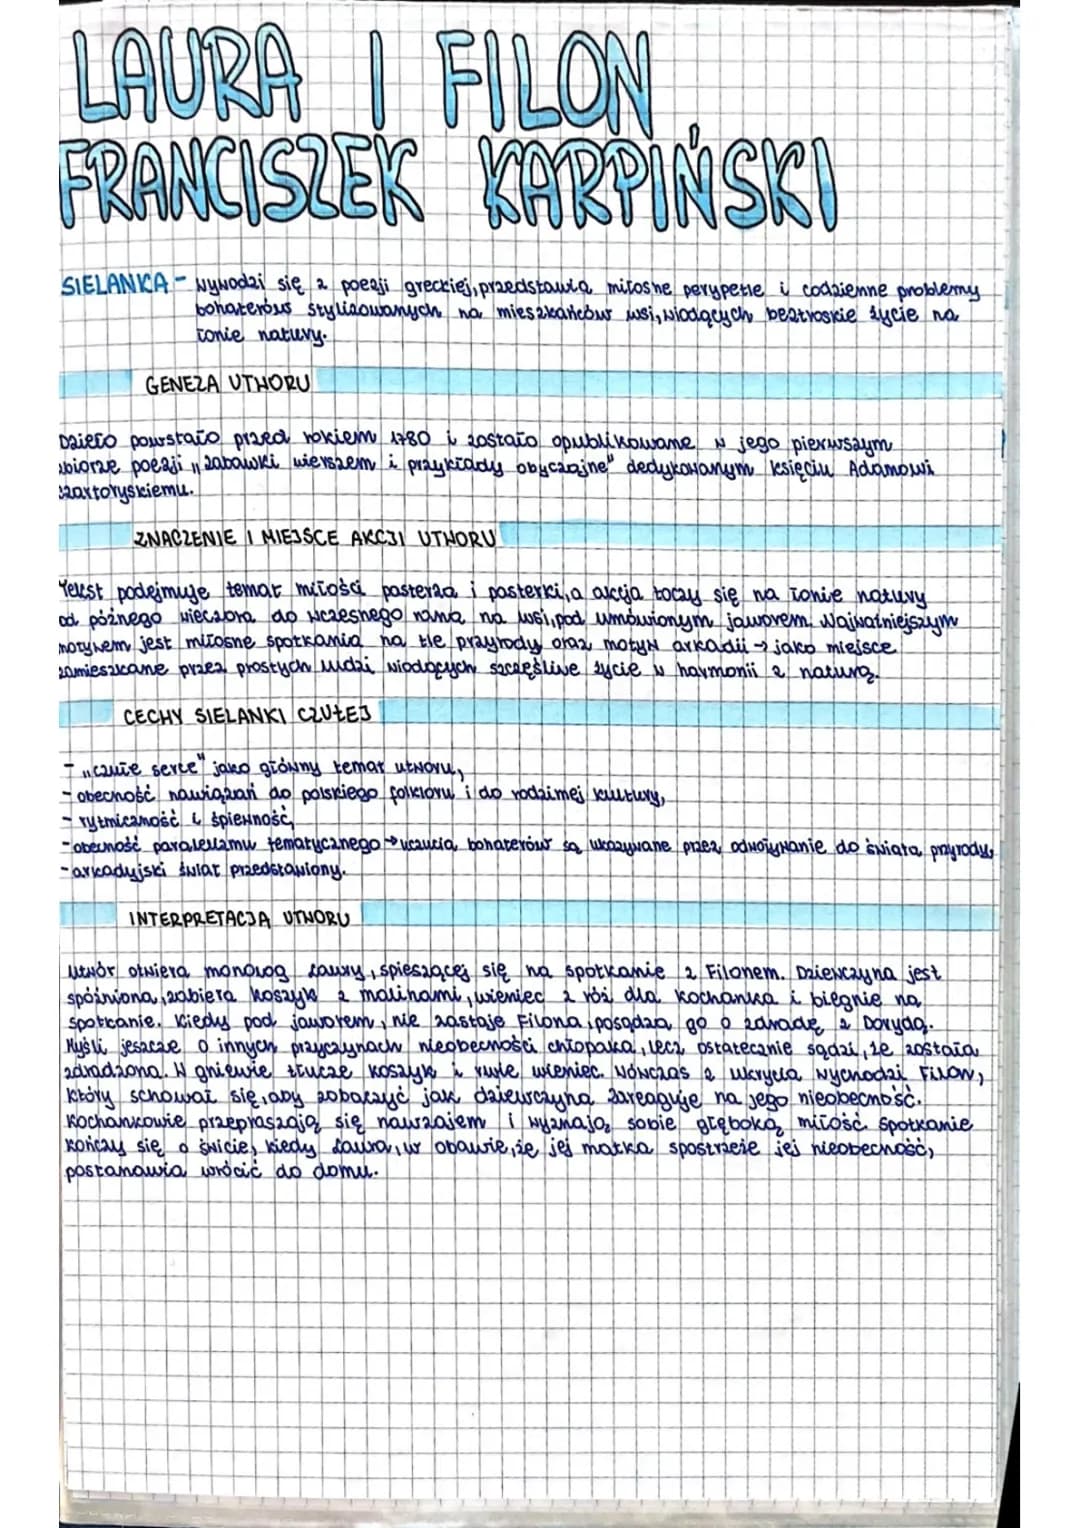 LAURA I FILON
FRANCISZEK KARPIŃSKI
SIELANKA - wywodzi się z poezji greckiej, przedstawia miłosne perypetie i codzienne problemy
bohaterów stylizowanych na mieszkańców wsi, wiodących beztroskie życie na
łonie natury.
GENEZA UTWORU
Dzieło powstało przed rokiem 1780 i zostało opublikowane w jego pierwszym
zbiorze poezji "Zabawki wierszem i przykłady obyczajne" dedykowanym księciu Adamowi
Czartoryskiemu.
ZNACZENIE I MIEJSCE AKCJI UTWORU
Tekst podejmuje temat miłości pasterza i pasterki, a akcja toczy się na łonie natury
od późnego wieczora do wczesnego rana na wsi, pod umówionym jaworem. Najważniejszym
motywem jest miłosne spotkania na tle przyrody oraz motyw arkadii → jako miejsce
zamieszkane przez prostych ludzi wiodących szczęśliwe życie w harmonii z naturą.
CECHY SIELANKI CZUŁEJ
- "czułe serce" jako główny temat utworu,
- obecność nawiązań do polskiego folkloru i do rodzimej kultury,
- rytmiczność i śpiewność,
- obecność paralelizmu tematycznego → uczucia bohaterów są ukazywane przez odwoływanie do świata przyrody,
- arkadyjski świat przedstawiony.
INTERPRETACJA UTWORU
Utwór otwiera monolog Laury, śpieszącej się na spotkanie z Filonem. Dziewczyna jest
spóźniona, zabiera koszyk z malinami, wieniec z róż dla kochanka i biegnie na
spotkanie. Kiedy pod jaworem, nie zastaje Filona, posądza go o zdradę z Dorydą.
Myśli jeszcze o innych przyczynach nieobecności chłopaka, lecz ostatecznie sądzi, że została
zdradzona. W gniewie tłucze koszyk i rwie wieniec. Wówczas z ukrycia wychodzi Filon,
który schował się, aby zobaczyć jak dziewczyna zareaguje na jego nieobecność.
Kochankowie przepraszają się nawzajem i wyznają sobie głęboką miłość. Spotkanie
kończy się o świcie, kiedy Laura, w obawie, że jej matka spostrzeże jej nieobecność,
postanawia wrócić do domu.